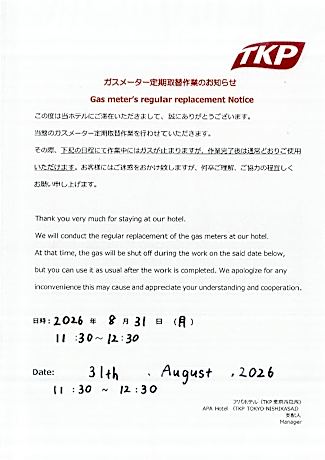 TKP
ガスメーター定期取替作業のお知らせ
Gas meter's regular replacement Notice
この度は当ホテルにご滞在いただきまして、誠にありがとうございます。
当館のガスメーター定期取替作業を行わせていただきます。
その際、下記の日程にて作業中にはガスが止まりますが、作業完了後は通常どおりご使用
いただけます。お客様にはご迷惑をおかけ致しますが、何卒ご理解、ご協力の程宜しく
お願い申し上げます。
Thank you very much for staying at our hotel.
We will conduct the regular replacement of the gas meters at our hotel.
At that time, the gas will be shut off during the work on the said date below,
but you can use it as usual after the work is completed. We apologize for any
inconvenience this may cause and appreciate your understanding and cooperation.
日時: 2026 年 8 月 31 日 (月)
11:30~12:30
Date: 31th 、 August , 2026
11:30 ~ 12:30
アパホテル〈TKP東京西葛西〉
APA Hotel 〈TKP TOKYO NISHIKASAI〉
支配人
Manager